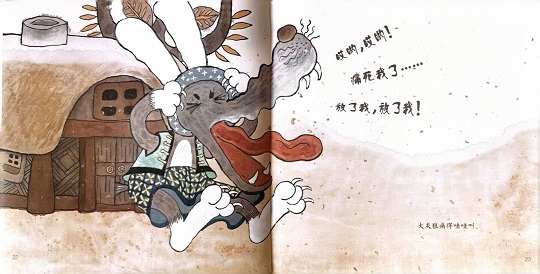 哎哟，哎哟！
痛死我了……
放了我，放了我！
大灰狼痛得哇哇叫。
22
23